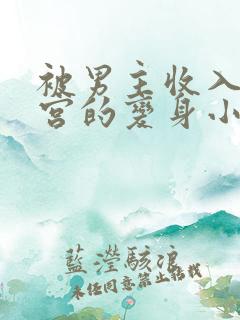 被男主收入
宮的變身小
藍瀅駭浪
未经同意禁止转载